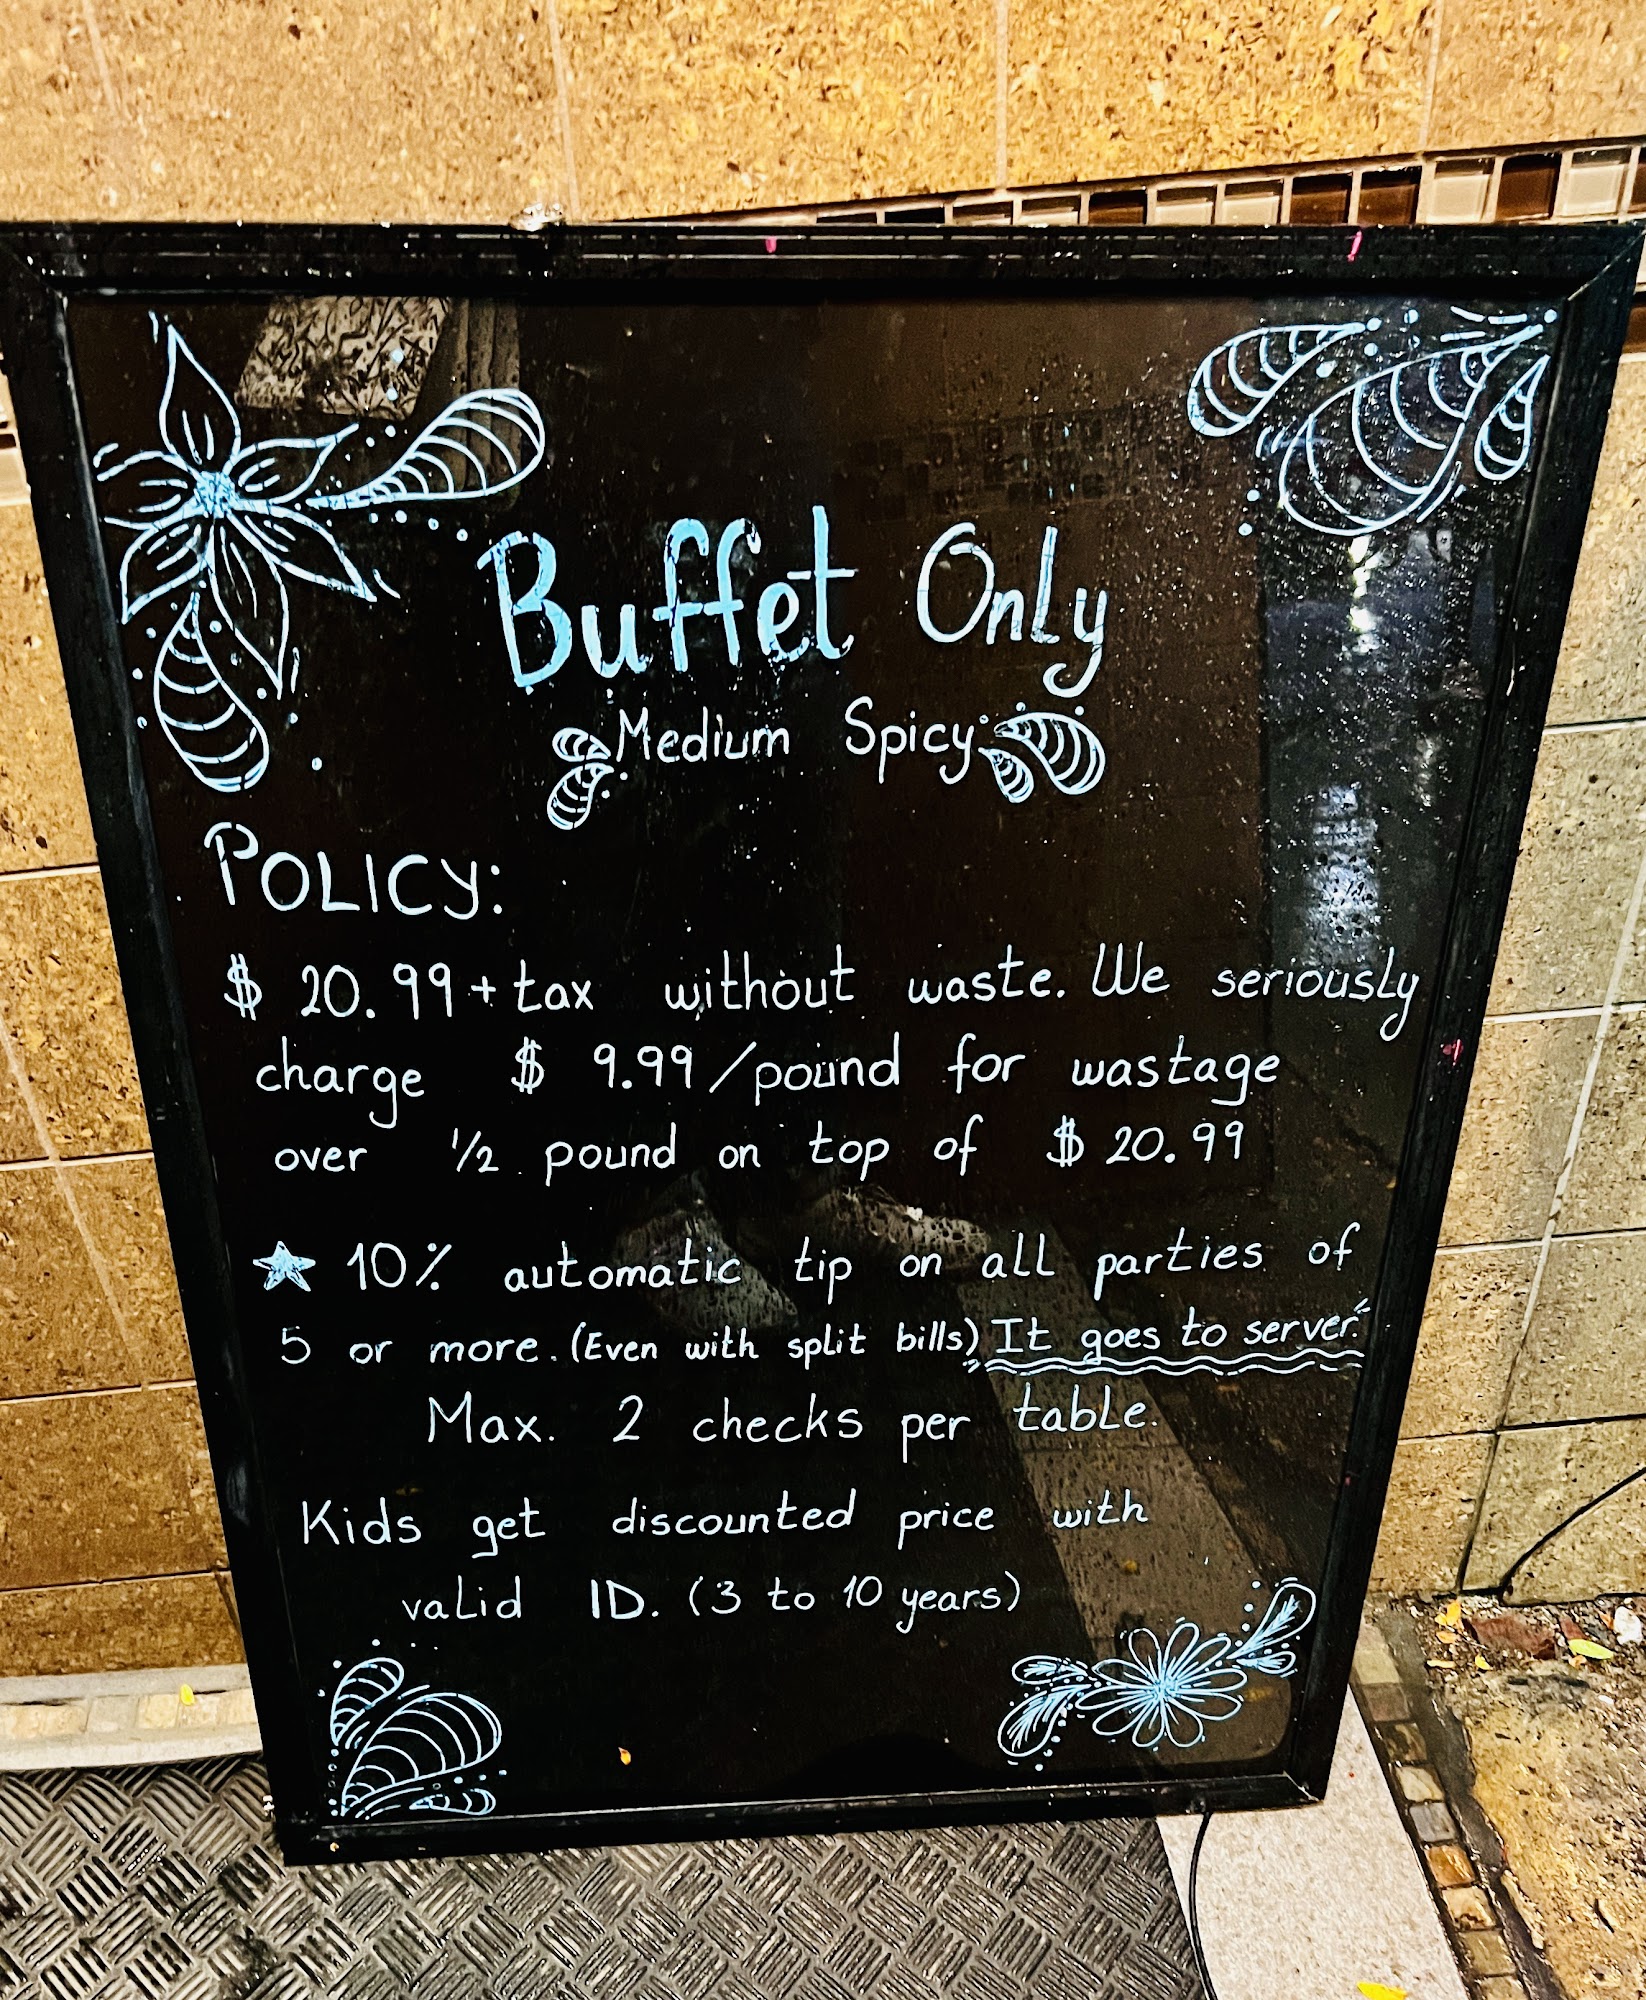 Buffet Only
Medium Spicy
POLICY:
$ 20.99 + tax without waste. We seriously
charge $ 9.99/pound for wastage
over 1/2 pound on top of $ 20.99
★ 10% automatic tip on all parties of
5 or more. (Even with split bills) It goes to server.
Max. 2 checks per table.
Kids get discounted price with
valid ID. (3 to 10 years)